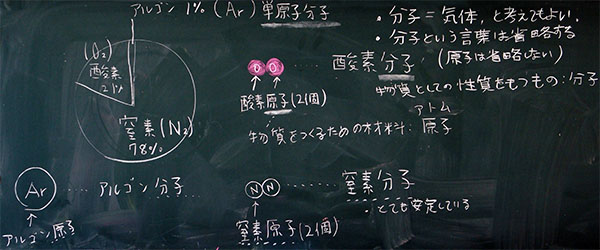 アルゴン 1% (Ar) 単原子分子
(O₂)
酸素
21%
窒素(N₂)
78%
・分子=気体、と考えてもよい。
・分子という言葉は省略する
(原子は省略しない)
O O ‥‥‥ 酸素分子
酸素原子(2個)
物質としての性質をもつもの:分子
アトム
物質をつくるための材料:原子
Ar ‥‥ アルゴン分子
アルゴン原子
N N ‥‥‥ 窒素分子
・とても安定している
窒素原子(2個)